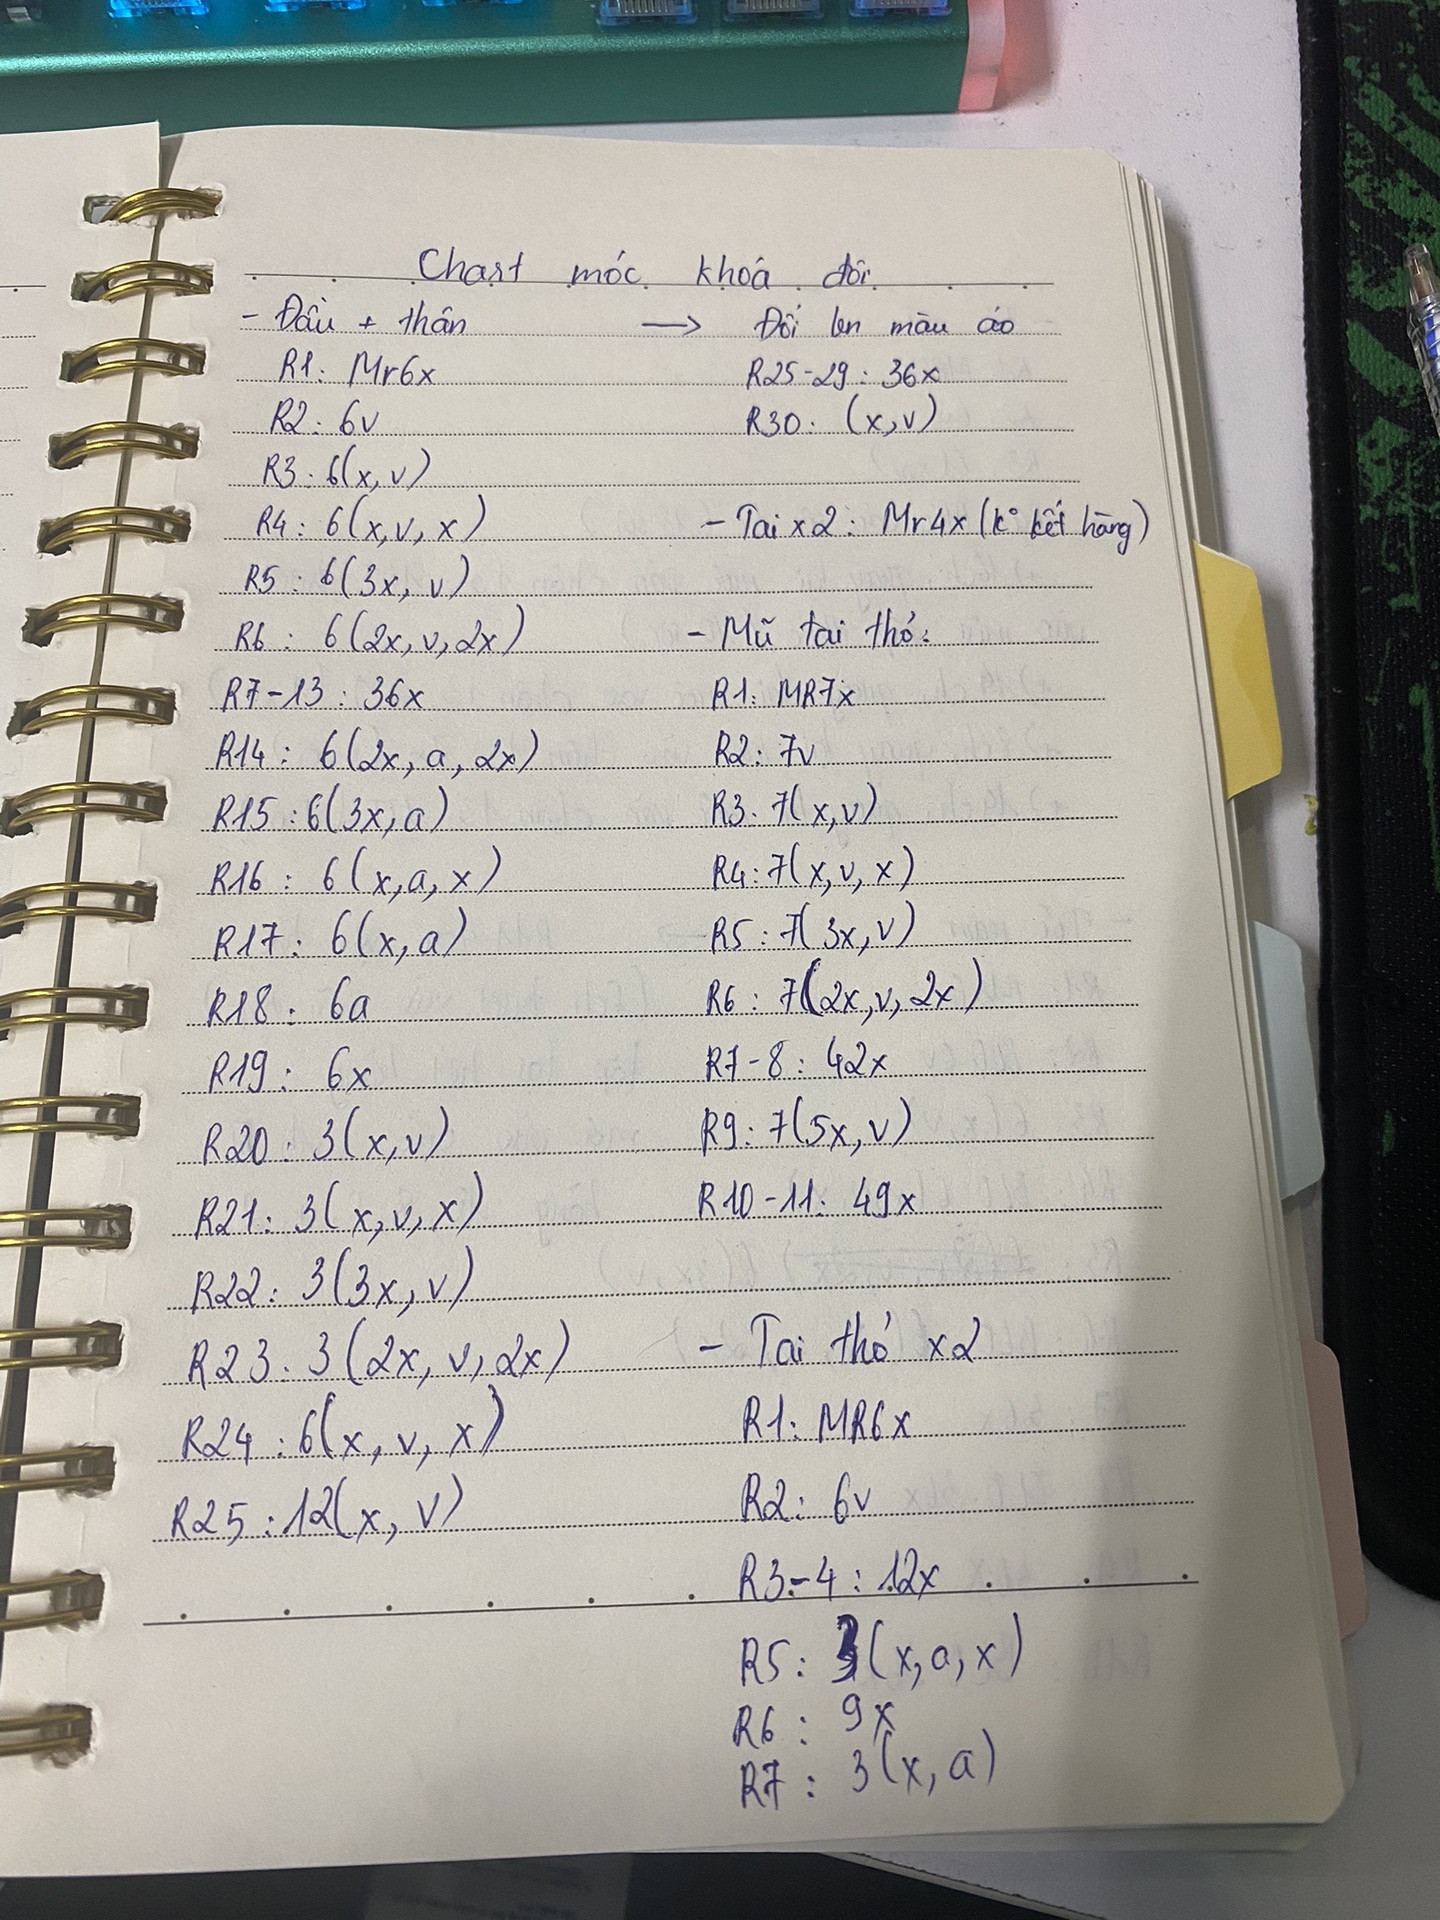 Chart móc khoá đôi.
- Đầu + thân
R1: Mr6x
R2: 6v
R3: 6(x,v)
R4: 6(x,v,x)
R5: 6(3x, v)
R6: 6(2x,v,2x)
R7-13: 36x
R14: 6(2x, a, 2x)
R15: 6(3x,a)
R16: 6(x,a,x)
R17: 6(x,a)
R18: 6a
R19: 6x
R20: 3(x,v)
R21: 3(x,v,x)
R22: 3(3x,v)
R23: 3(2x, v, 2x)
R24: 6(x, v, x)
R25: 12(x, v)
→ Đổi len màu áo
R25-29: 36x
R30: (x,v)
- Tai x2: Mr4x (k° kết hàng)
- Mũ tai thỏ:
R1: MR7x
R2: 7v
R3: 7(x,v)
R4: 7(x, v, x)
R5: 7(3x,v)
R6: 7(2x,v,2x)
R7-8: 42x
R9: 7(5x,v)
R10-11: 49x
- Tai thỏ x2
R1: MR6x
R2: 6v
R3-4: 12x
R5: 3(x,a,x)
R6: 9x
R7: 3(x,a)